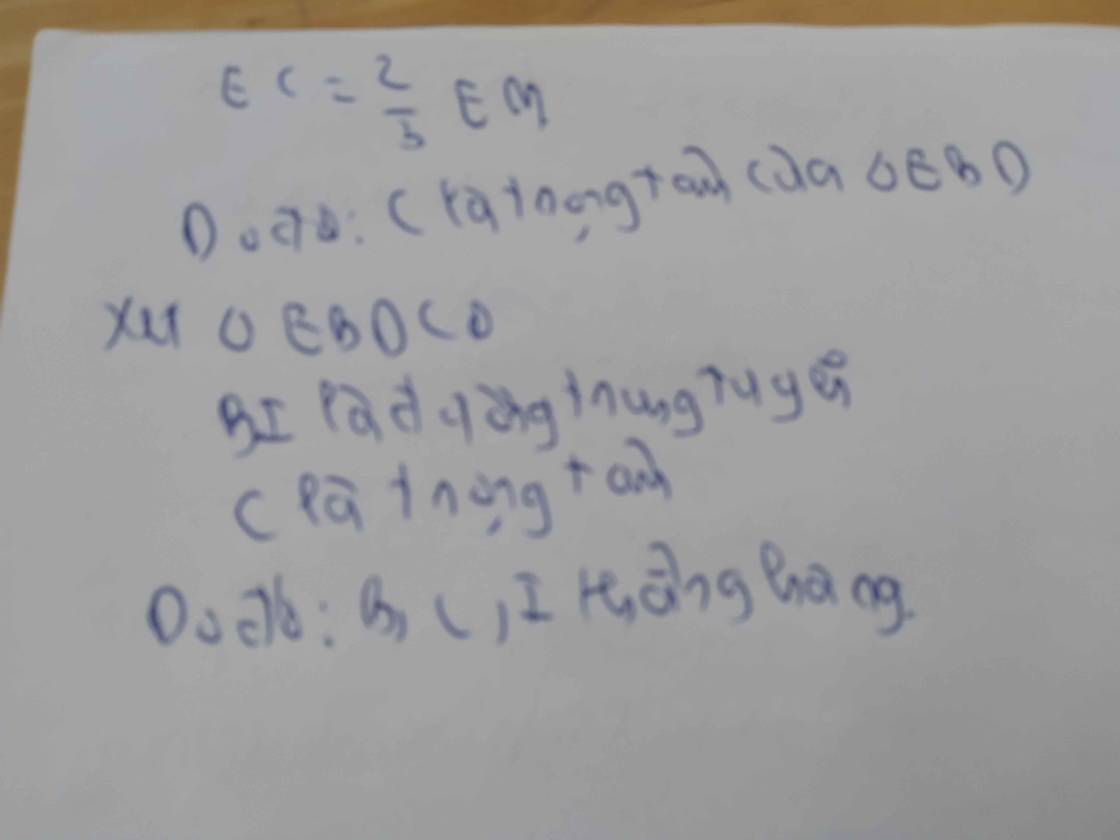 EC = 2/3 EM
Do đó: C là trọng tâm của △EBD
Xét △ EBD có
BI là đường trung tuyến
C là trọng tâm
Do đó: B, C, I thẳng hàng.